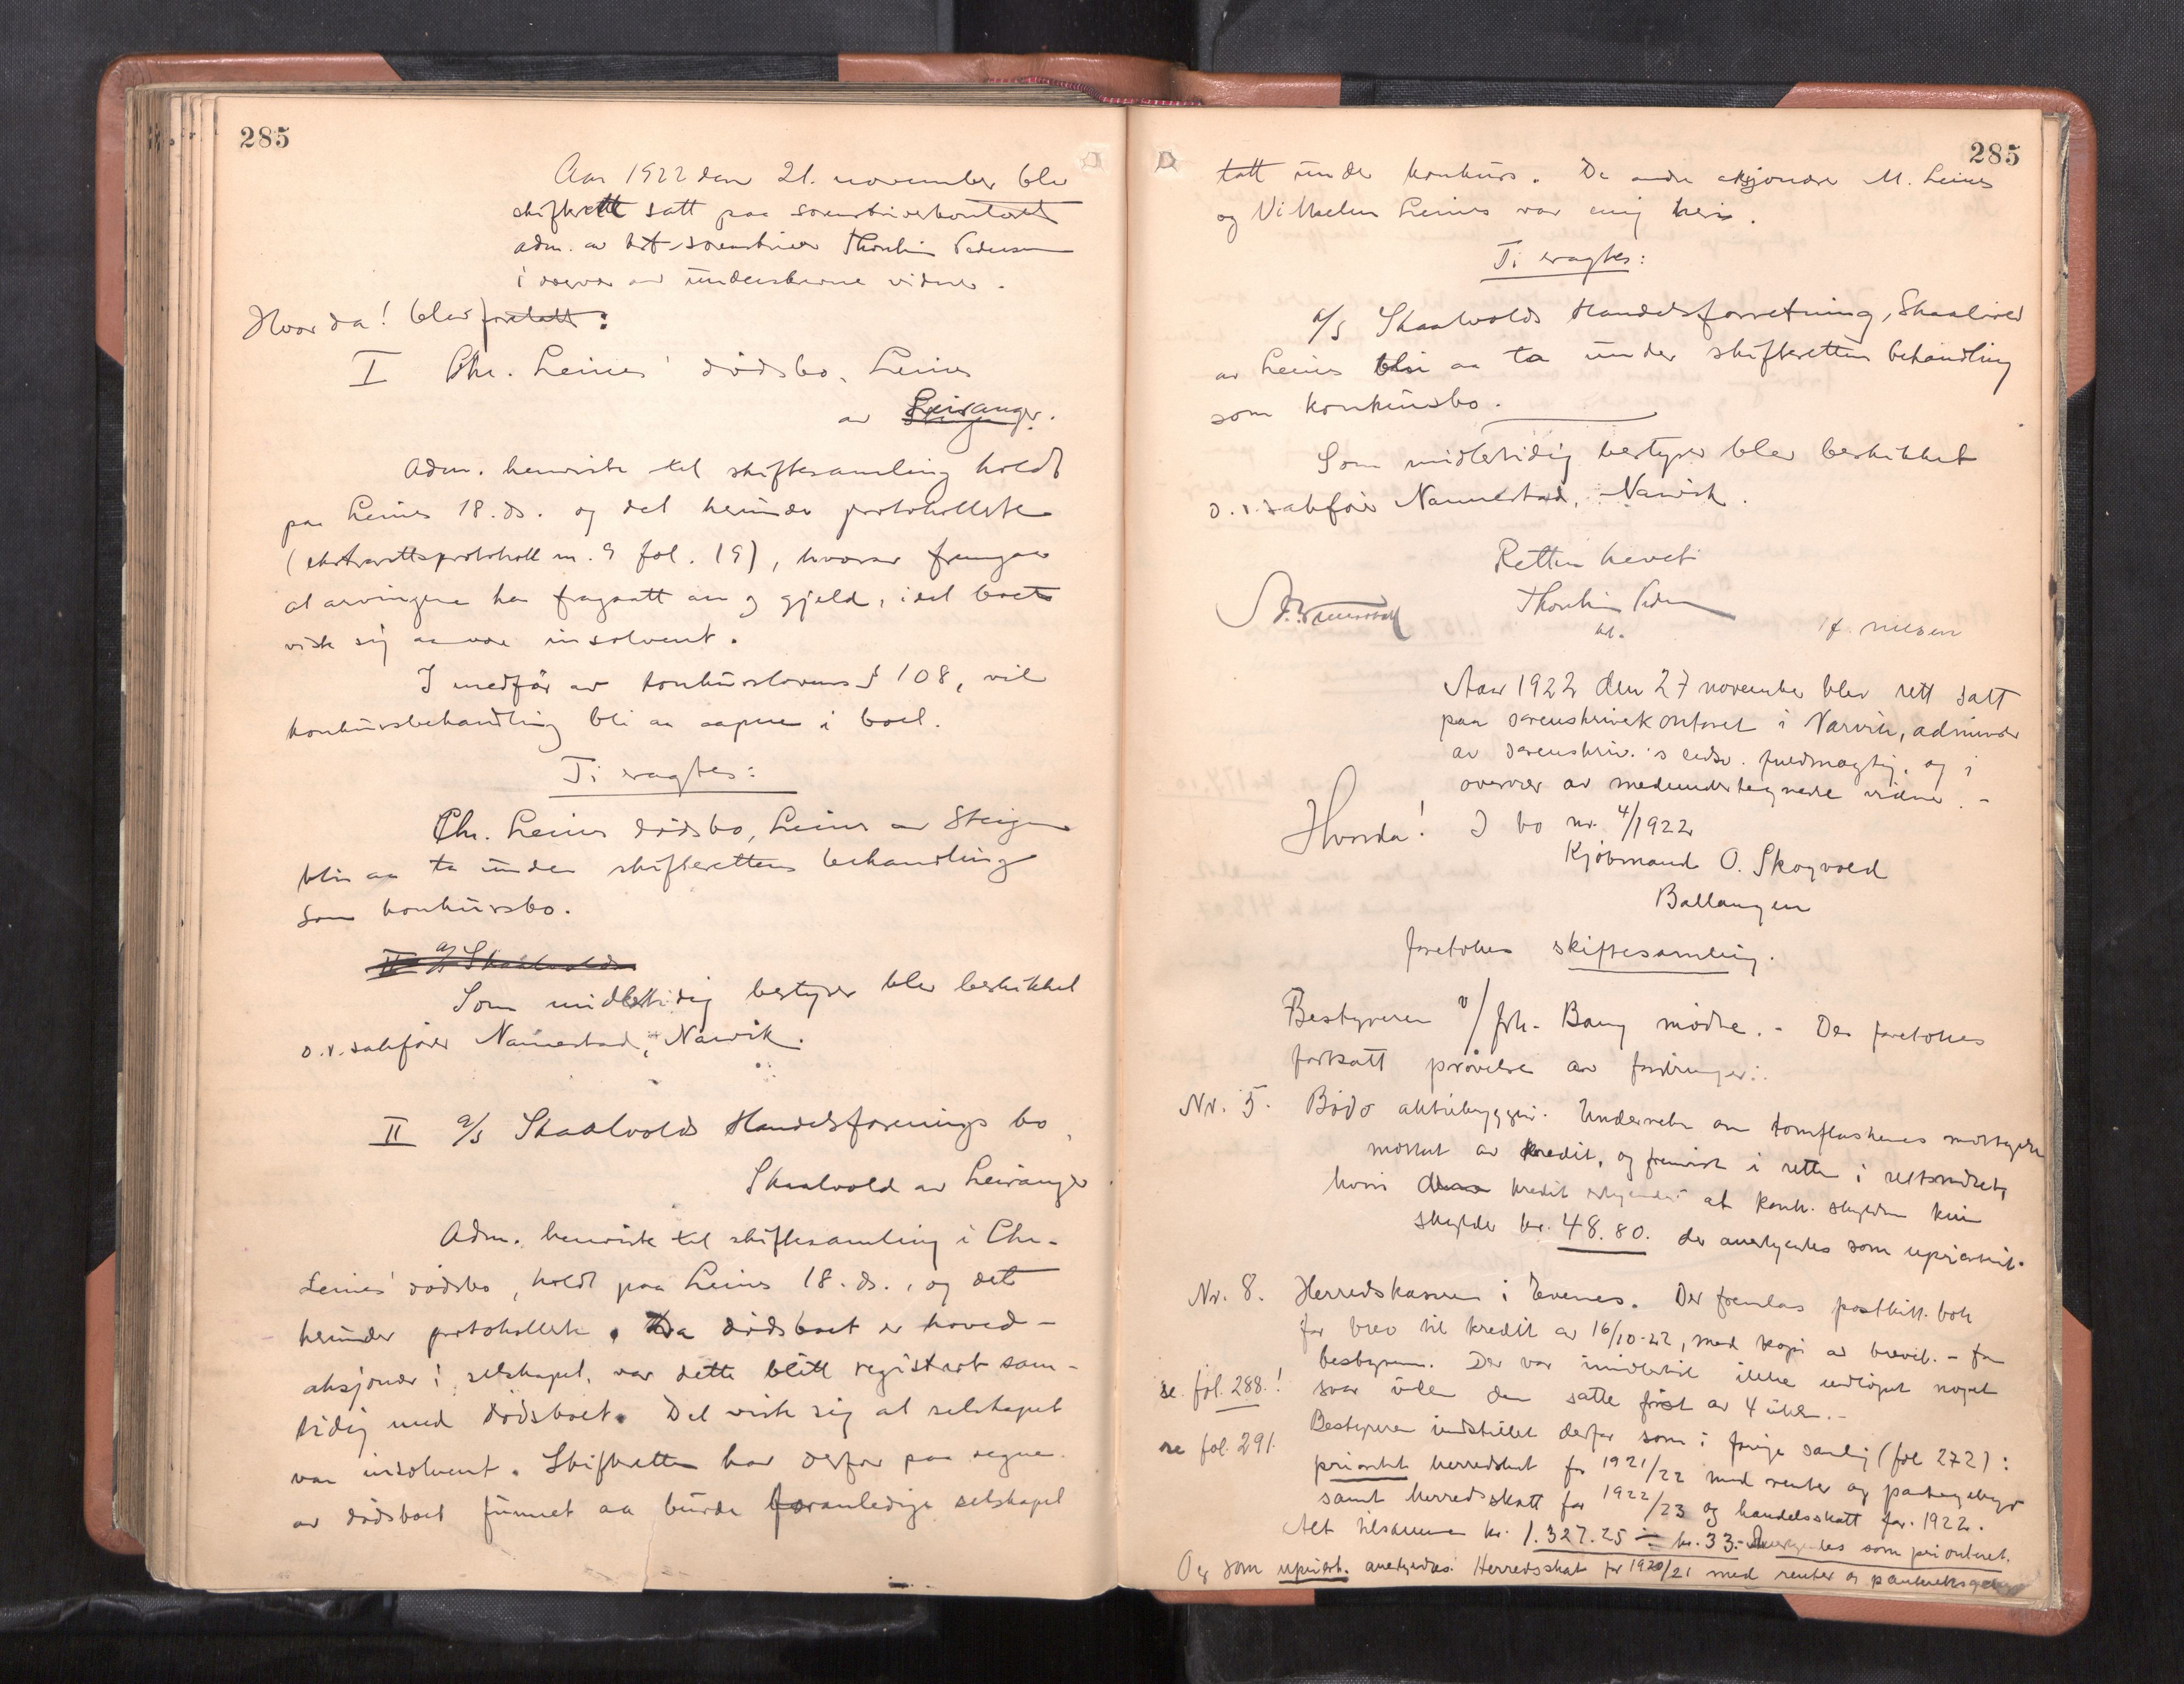 285
Aar 1922 den 21. november blev
skifterett satt paa sorenskriverkontoret
adm. av kst. sorenskriver Thorolv Pedersen
i overvær av underskrevne vidner.
Hvorda! blev foretatt:
I Chr. Leines' dødsbo, Leines
av Leiranger.
Adm. henviste til skiftesamling holdt
paa Leines 18. ds. og det herunder protokollerte
(ekstrarettsprotokoll nr. 9 fol. 19), hvorav fremgaar
at arvingene har fragaatt arv og gjeld, idet boet
viste sig aa være insolvent.
I medfør av konkurslovens § 108, vil
konkursbehandling bli aa aapne i boet.
Ti eragtes:
Chr. Leines dødsbo, Leines av Steigen
blir aa ta under skifterettens behandling
som konkursbo.
II a/s Skaalvolds
Som midlertidig bestyrer blev beskikket
o.r.sakfører Nannestad, Narvik.
II a/s Skaalvolds Handelsforenings bo,
Skaalvold av Leiranger
Adm. henviste til skiftesamling i Chr.
Leines' dødsbo, holdt paa Leines 18. ds., og det
herunder protokollerte. Da dødsboet er hoved-
aksjonær i selskapet, var dette blitt registrert sam-
tidig med dødsboet. Det viste sig at selskapet
var insolvent. Skifteretten har derfor paa vegne
av dødsboet funnet aa burde foranledige selskapet
285
tatt under konkurs. De andre aksjonærer M. Leines
og Vilhelm Leines var enig heri.
Ti eragtes:
a/s Skaalvolds Handelsforretning, Skaalvold
av Leines blir aa ta under skifterettens behandling
som konkursbo.
Som midlertidig bestyrer blev beskikket
o.r.sakfører Nannestad, Narvik.
Retten hevet
Thorolv Pedersen
kst.
Nilsen
Aar 1922 den 27 november blev rett satt
paa sorenskriverkontoret i Narvik, administr
av sorenskriv.'s edsv. fuldmægtig, og i
overvær av medundertegnede vidner. -
Hvorda! I bo nr. 4/1922
Kjøbmand O. Skogvold
Ballangen
foretokes skiftesamling.
Bestyreren v/ frk. Bang mødte. - Der foretokes
fortsatt prøvelse av fordringer:
Nr. 5. Bodø aktiebryggeri. Underretn om tomflaskenes mottagelse
mottat av kredit, og fremvist i retten i rettsmøtet,
hvori kredit erkjender at konk. skyldn kun
skylder kr. 48.80. der anerkjendtes som upriorit.
Nr. 8. Herredskassen i Evenes. Der fremlas postkvitt. bok
for brev til kredit av 16/10-22, med kopi av brevet. - fra
bestyreren. Der var imidlertid ikke indløpet noget
se fol. 288.! svar inden den satte frist av 4 uker.-
Bestyreren indstillet derfor som i forrige samling (fol 272):
se fol. 291. prioritet herredskat for 1921/22 med renter og pantegebyr
samt herredsskatt for 1922/23 og handelsskatt for 1922.
Alt tilsammen kr. 1.327.25 ÷ kr. 33.- Anerkjendtes som prioritert.
Og som upriort. anerkjendtes Herredsskat for 1920/21 med renter og